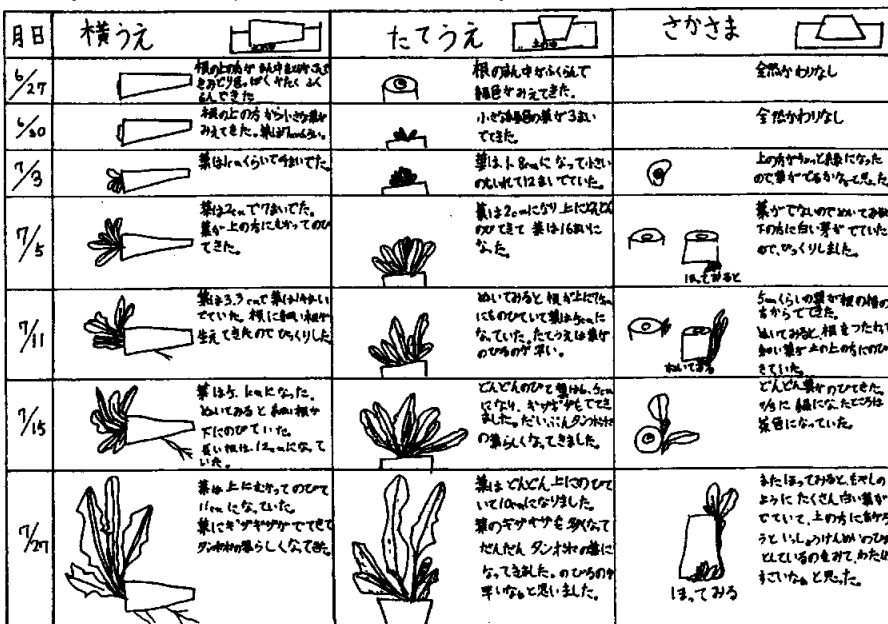 月日
横うえ
たてうえ
さかさま
6/27
根の上の方が まん中を
きみどり色っぽく かたく ふく
らんできた
根のまん中がふくらんで
緑色がみえてきた。
全然かわりなし
6/30
根の上の方から小さな葉が
みえてきた。
小さな緑色の葉が3まい
でてきた。
全然かわりなし
7/3
葉は1cmくらいで4まいでた。
葉は1.8cmになって小さい
のもいれて12まいでていた。
上の方がちょっと緑になった
ので葉がでるかなぁと思った
7/5
葉は2cmで7まいでた。
葉が上の方にむかってのび
てきた。
葉は2cmになり上にどんどん
のびてきて 葉は16まいに
なった。
葉がでないのでぬいてみた
下の方に白い芽がでていた
ので、びっくりしました。
ほってみると
7/11
葉は3.3cmで葉は14まい
でていた。根に細い根が
生えてきたのでびっくりした
ぬいてみると 根が上に
にものびていて葉は5cmに
なっていた。たてうえは葉が
のびるのが早い。
5cmくらいの葉が根の横の
方からでてきた。
ぬいてみると、根をつたわって
細い葉が土の上の方にのび
きていた。
ぬいてみる
7/15
葉は5.1cmになった。
ぬいてみると 細い根が
下にのびていた。
長い根は、12cmになって
いた。
どんどんのびて葉は6.5cm
になり、ギザギザもでてき
ました。だいぶんタンポポ
の葉らしくなってきました。
どんどん葉がのびてきた。
緑になったところは
茶色になっていた。
7/27
葉は上にむかってのびて
11cmになっていた。
葉にギザギザがでてきて
タンポポの葉らしくなってきた。
葉はどんどん上にのびて
いて10cmになりました。
葉のギザギザも多くなって
だんだん タンポポの葉に
なってきました。のびるのが
早いなぁと思いました。
またほってみると、もやしの
ように たくさん白い葉が
でていて、上の方にあがろ
うと いっしょうけんめいのび
としているのをみて、わたし
すごいなぁと思った。
ほってみる